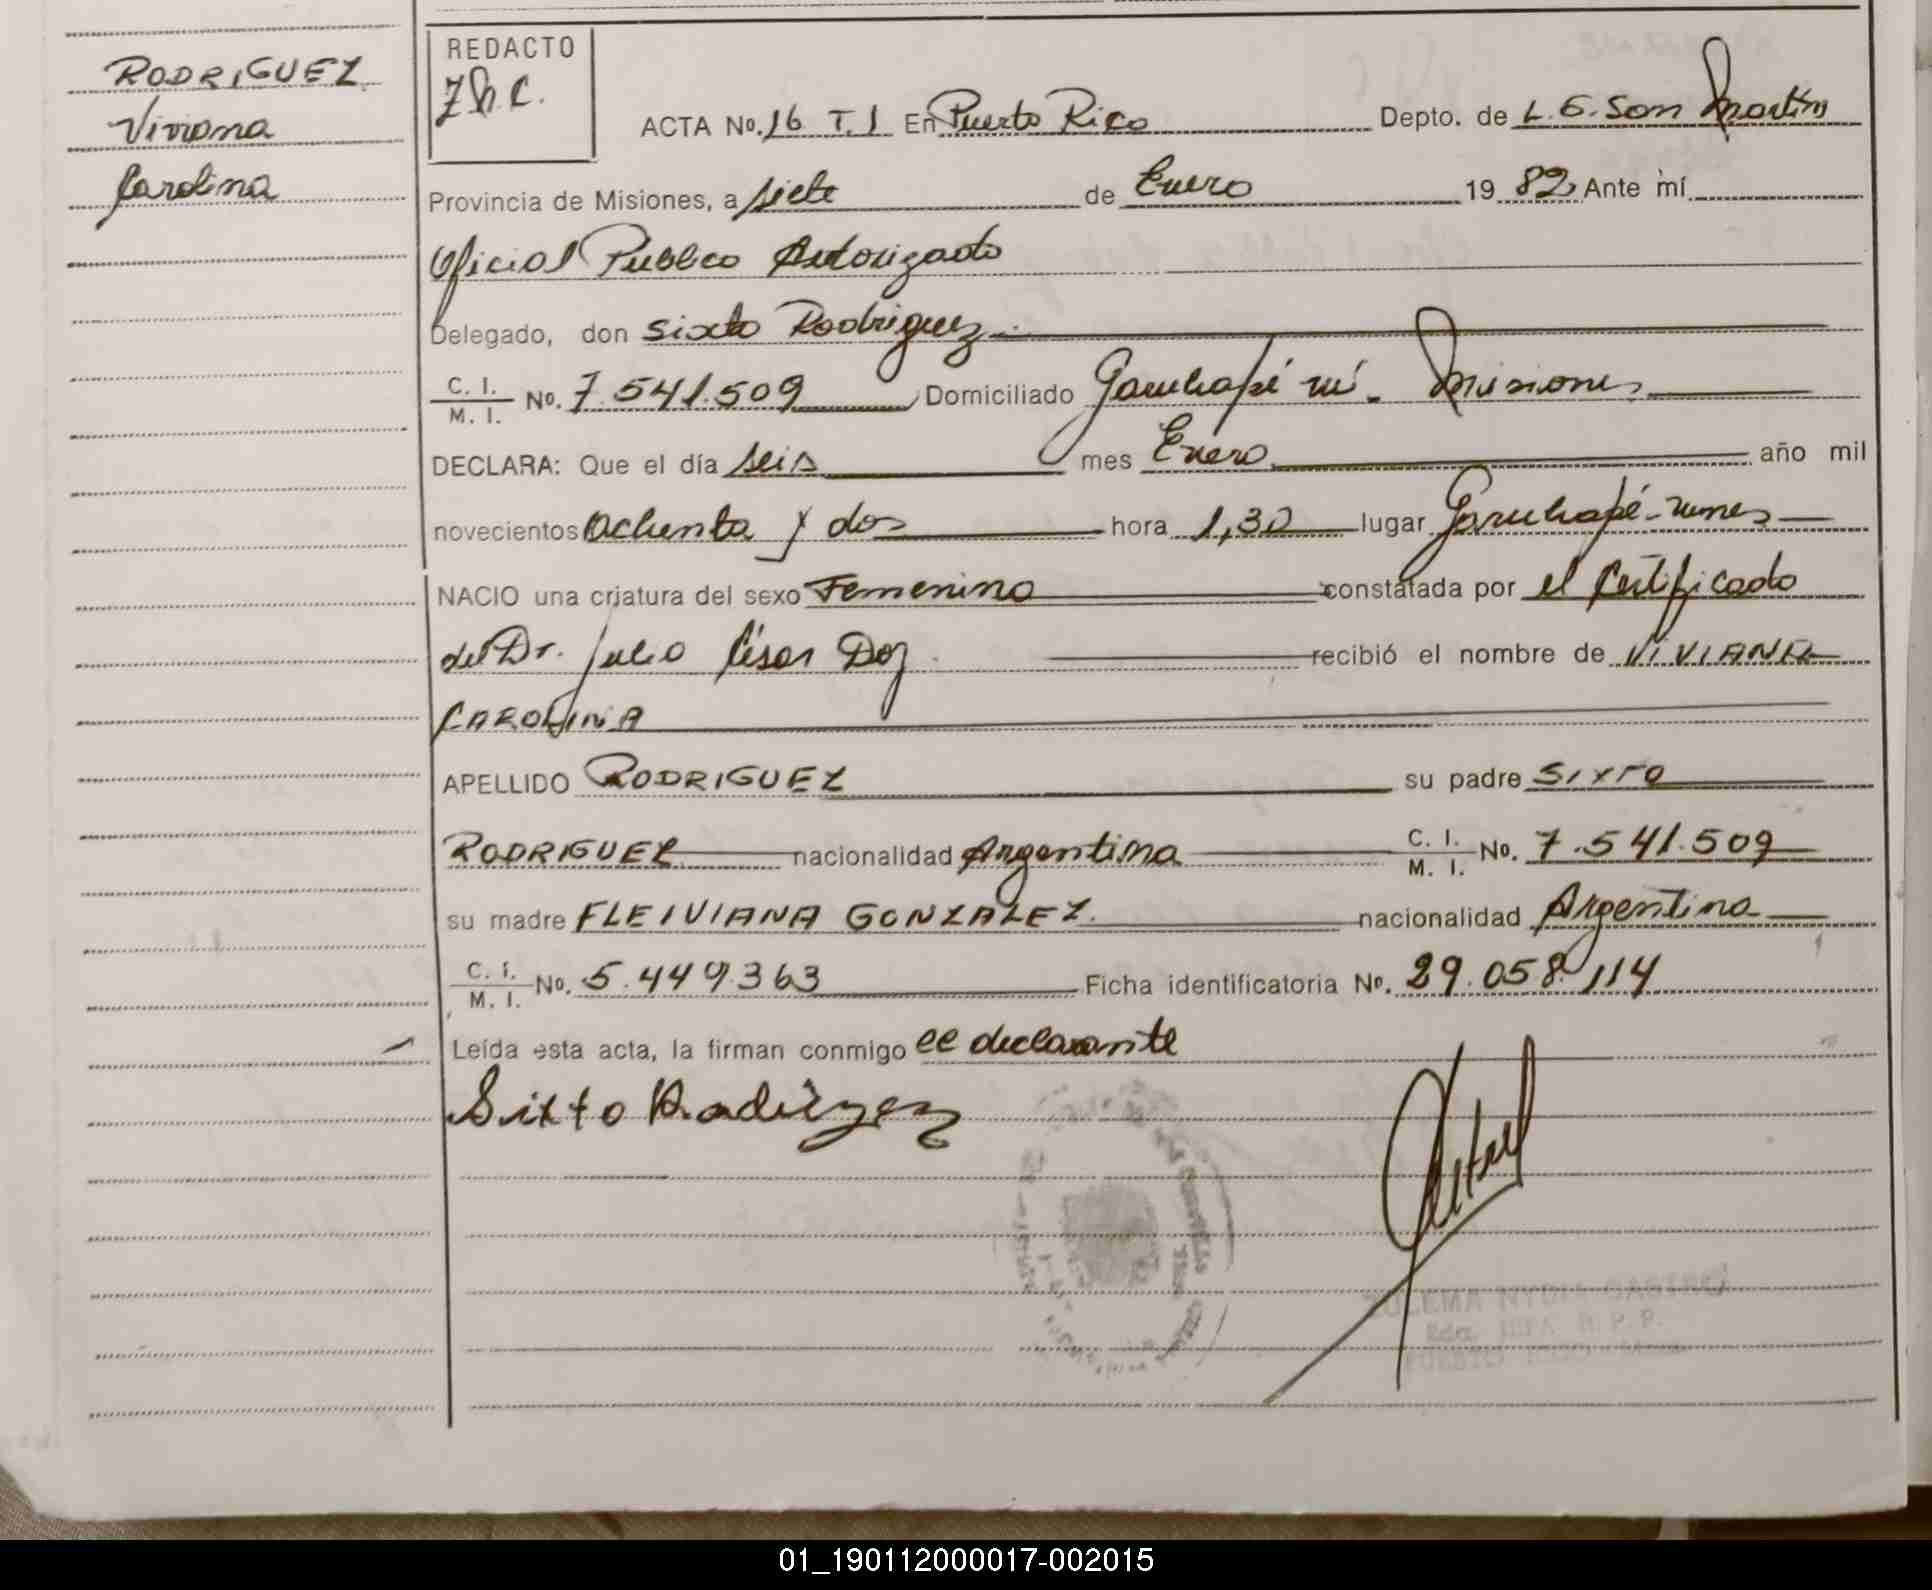 RODRIGUEZ
Viviana
Carolina
REDACTO
Z.N.C.
ACTA No. 16 T.1 En Puerto Rico Depto. de L.G. San Martín
Provincia de Misiones, a siete de Enero 19 82 Ante mí
Oficial Público Autorizado
Delegado, don Sixto Rodriguez
C. I. / M. I. No. 7.541.509 Domiciliado Garuhapé mí - Misiones
DECLARA: Que el día seis mes Enero año mil
novecientos ochenta y dos hora 1,30 lugar Garuhapé-mnes
NACIO una criatura del sexo Femenino constatada por el Certificado
del Dr. Julio César Doz recibió el nombre de VIVIANA
CAROLINA
APELLIDO RODRIGUEZ su padre SIXTO
RODRIGUEZ nacionalidad Argentina C. I. / M. I. No. 7.541.509
su madre FLEIVIANA GONZALEZ. nacionalidad Argentina
C. I. / M. I. No. 5.449.363 Ficha identificatoria No. 29.058.114
Leída esta acta, la firman conmigo el declarante
Sixto Rodriguez
ZULEMA NYDIA CASTRO
PUERTO RICO
01_190112000017-002015